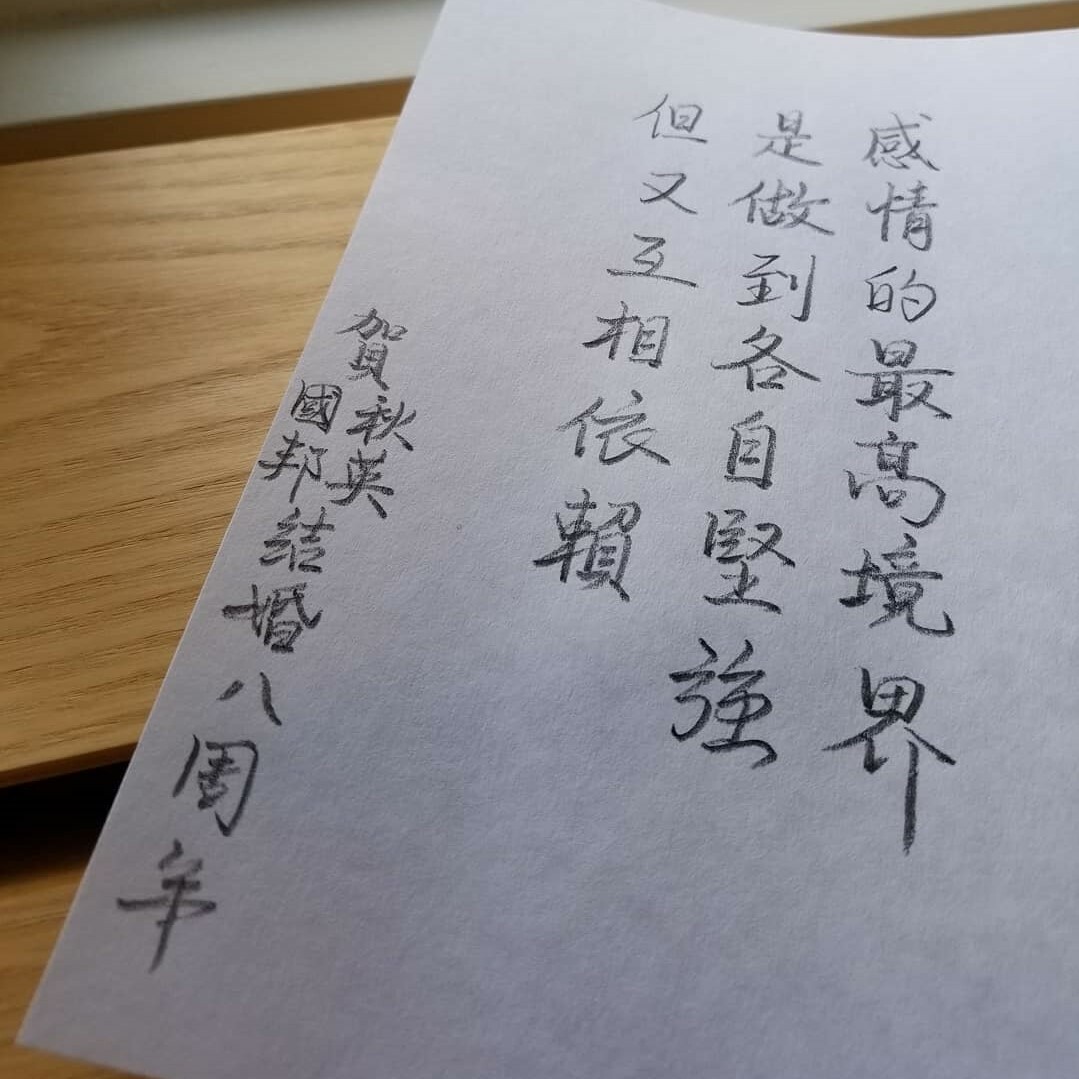 感情的最高境界
是做到各自堅強
但又互相依賴
賀秋英
國邦結婚八周年